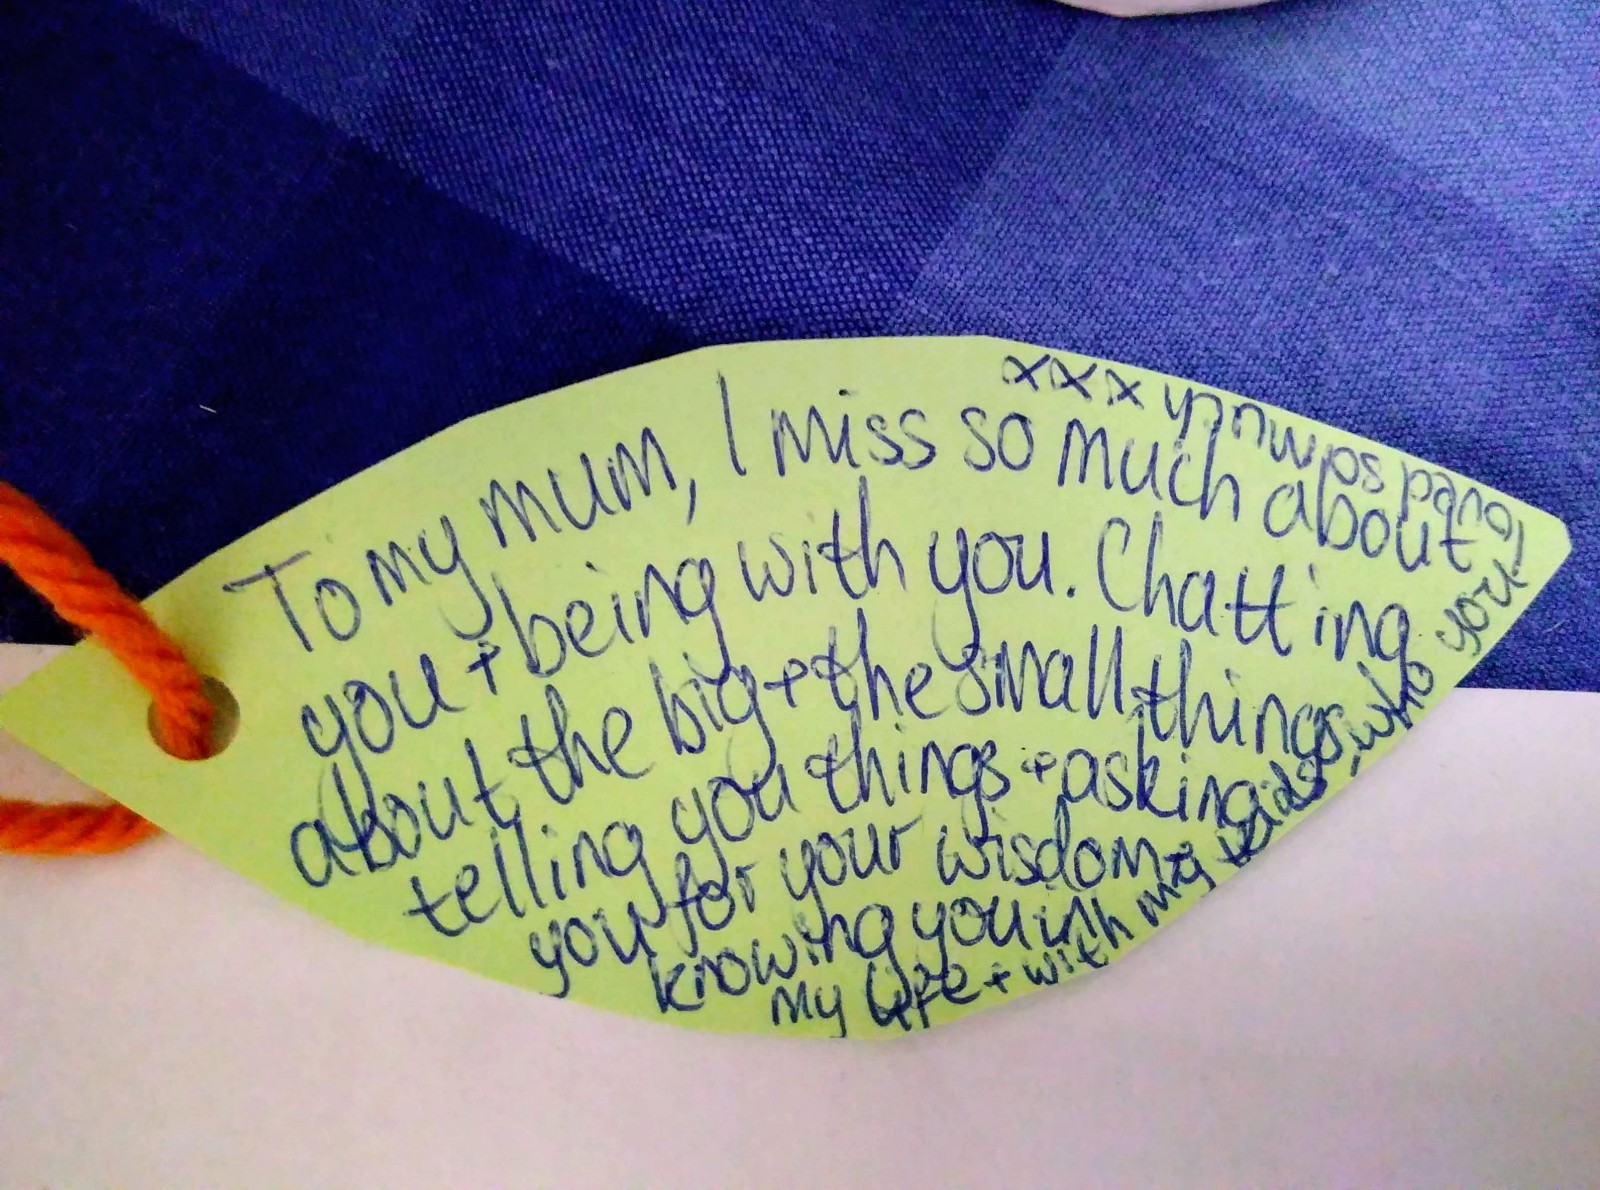 To my mum, I miss so much about
you + being with you. Chatting
about the big + the small things,
telling you things + asking
you for your wisdom +
knowing you in
my life + with my kids, who you
loved so much xxx